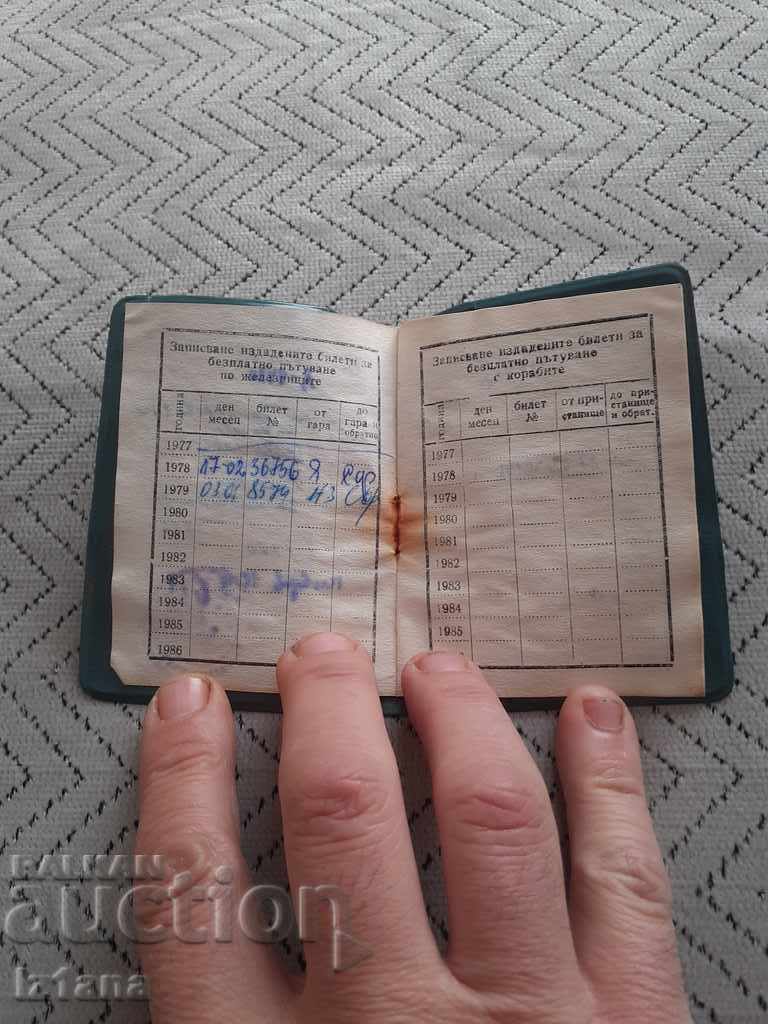 Записване издадените билети за
безплатно пътуване
по железниците
година
ден месец
билет №
от гара
до гара и обратно
1977
1978 17 02 36756 Я
1979
1980
1981
1982
1983
1984
1985
1986
Записване издадените билети за
безплатно пътуване
с корабите
година
ден месец
билет №
от при-
станище
до при-
станище
и обрат.
1977
1978
1979
1980
1981
1982
1983
1984
1985
BALKAN
auction
iz1ana